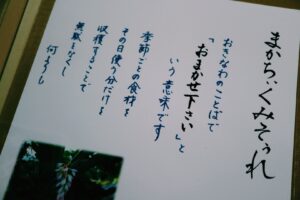 まかちぃくみそぅれ
おきなわのことばで
「おまかせ下さい」と
いう意味です
季節ごとの食材を
その日使う分だけを
収穫することで
無駄をなくし